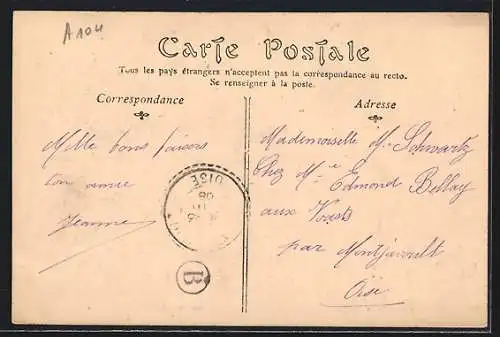 A104
Carte Postale
Tous les pays étrangers n'acceptent pas la correspondance au recto.
Se renseigner à la poste.
Correspondance
Mille bons baisers
ton amie
Jeanne
OISE
08
B
Adresse
Mademoiselle M. Schwartz
Chez Mr Edmond Bellay
aux
par Montjavoult
Oise